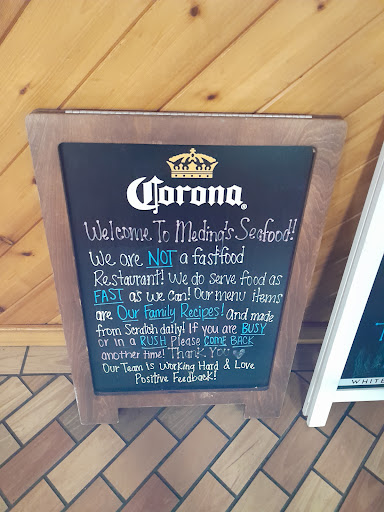 Corona
Welcome To Meding's Seafood!
We are NOT a fastfood
Restaurant! We do serve food as
FAST as we can! Our menu items
are Our Family Recipes! And made
from Scratch daily! If you are BUSY
or in a RUSH Please COME BACK
another time! Thank You
Our Team Is Working Hard & Love
Positive Feedback!
WHITE